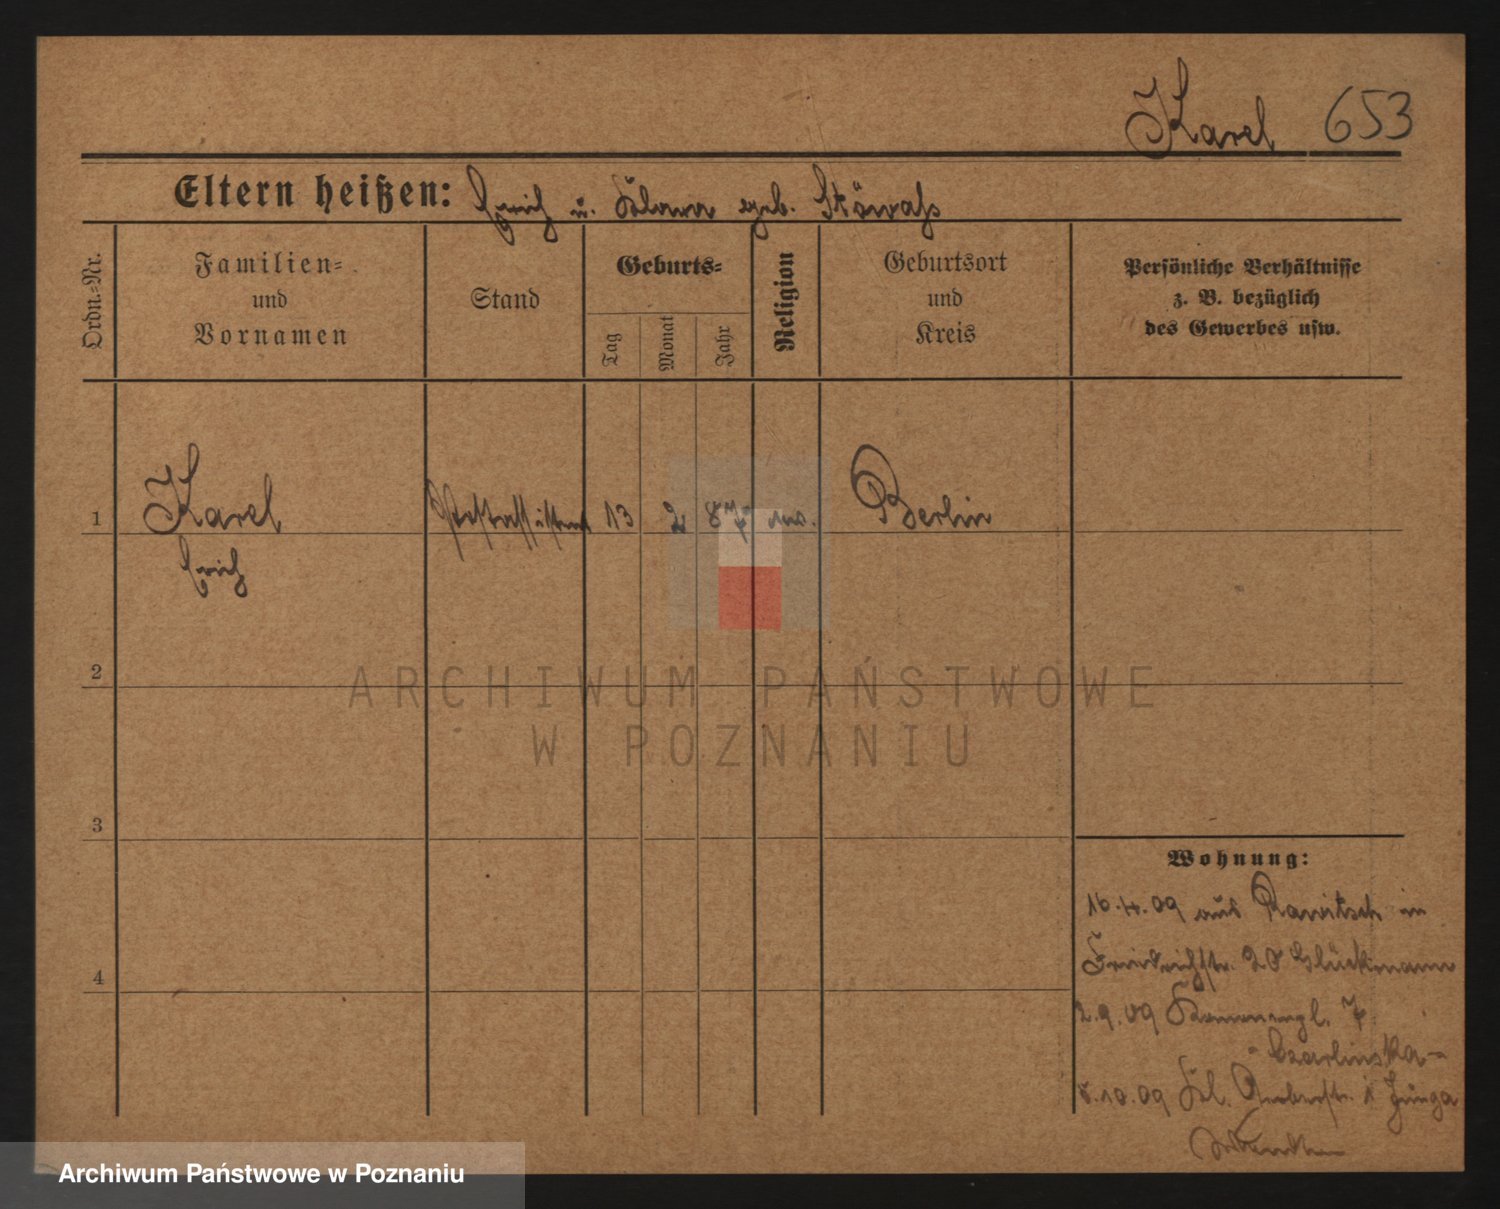 Karel 653
Eltern heißen: Erich u. Klara geb.
Ordn.-Nr.
Familien-
und
Vornamen
Stand
Geburts-
Tag
Monat
Jahr
Religion
Geburtsort
und
Kreis
Persönliche Verhältnisse
z. B. bezüglich
des Gewerbes usw.
1 Karel Postassistent 13 2 87 Berlin
Erich
2
3
4
Wohnung:
16.4.09 aus Rawitsch in
Friedrichstr. 28 Glückmann
2.9.09 7
Czarlinska
8.10.09 Kl. Gerberstr. 1
ARCHIWUM PAŃSTWOWE
W POZNANIU
Archiwum Państwowe w Poznaniu